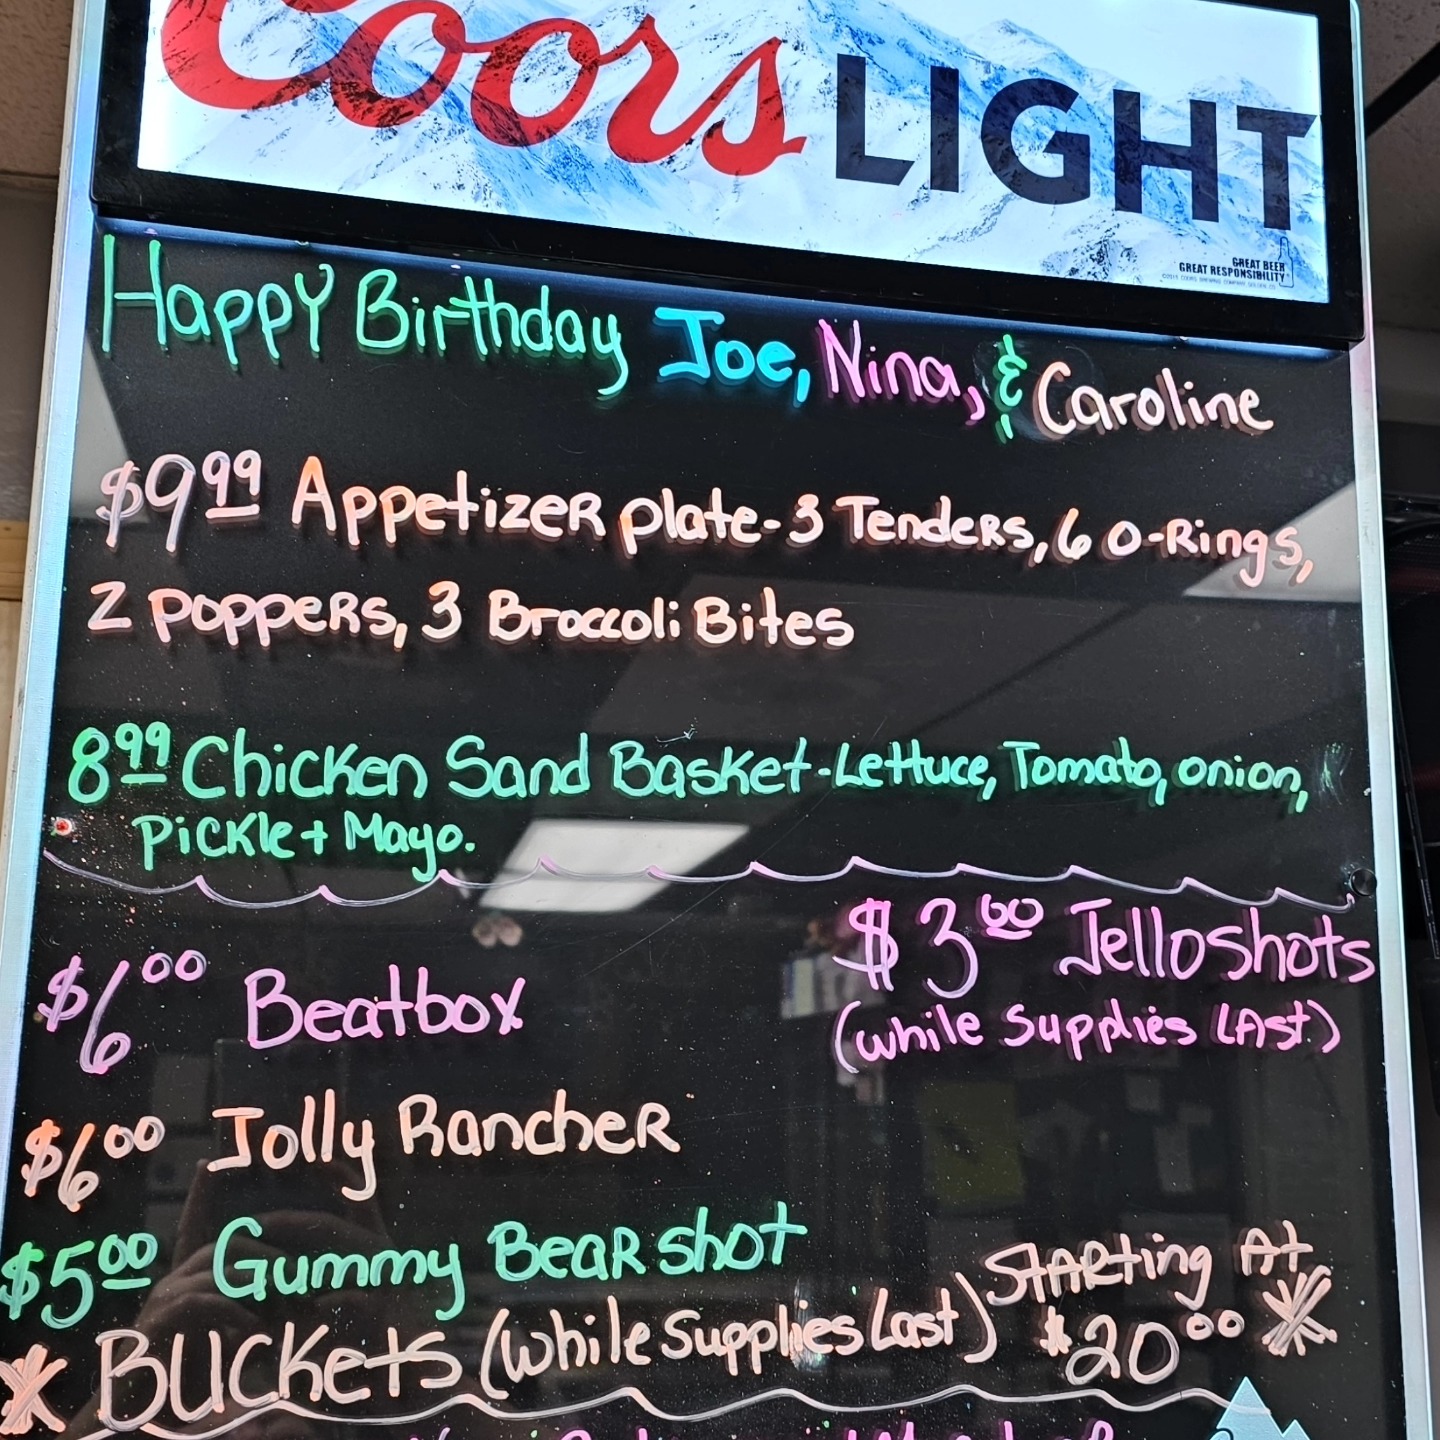 Coors LIGHT
GREAT BEER
GREAT RESPONSIBILITY
Happy Birthday Joe, Nina, & Caroline
$9.99 Appetizer plate - 3 Tenders, 6 O-Rings,
2 poppers, 3 Broccoli Bites
8.99 Chicken Sand Basket - Lettuce, Tomato, onion,
Pickle + Mayo.
$3.00 Jelloshots
(while supplies Last)
$6.00 Beatbox
$6.00 Jolly Rancher
$5.00 Gummy Bear shot
* Buckets (while supplies Last) Starting At
$20.00 *